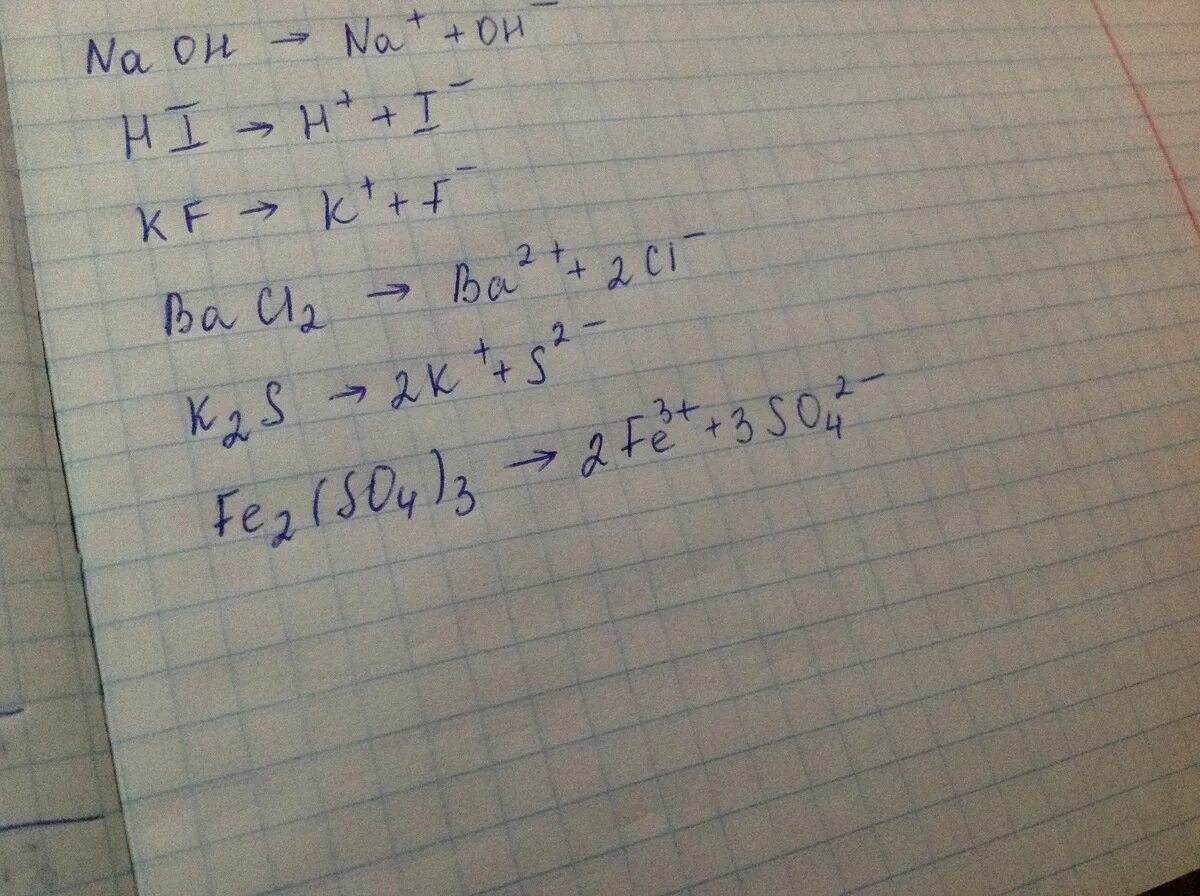 NaOH → Na⁺ + OH⁻
HI → H⁺ + I⁻
KF → K⁺ + F⁻
BaCl₂ → Ba²⁺ + 2Cl⁻
K₂S → 2K⁺ + S²⁻
Fe₂(SO₄)₃ → 2Fe³⁺ + 3SO₄²⁻